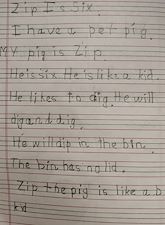 Zip Is Six.
I have a pet pig.
My pig is Zip.
He is six. He is like a kid.
He likes to dig. He will
dig and dig.
He will dip in the bin.
The bin has no lid.
Zip the pig is like a b
kid